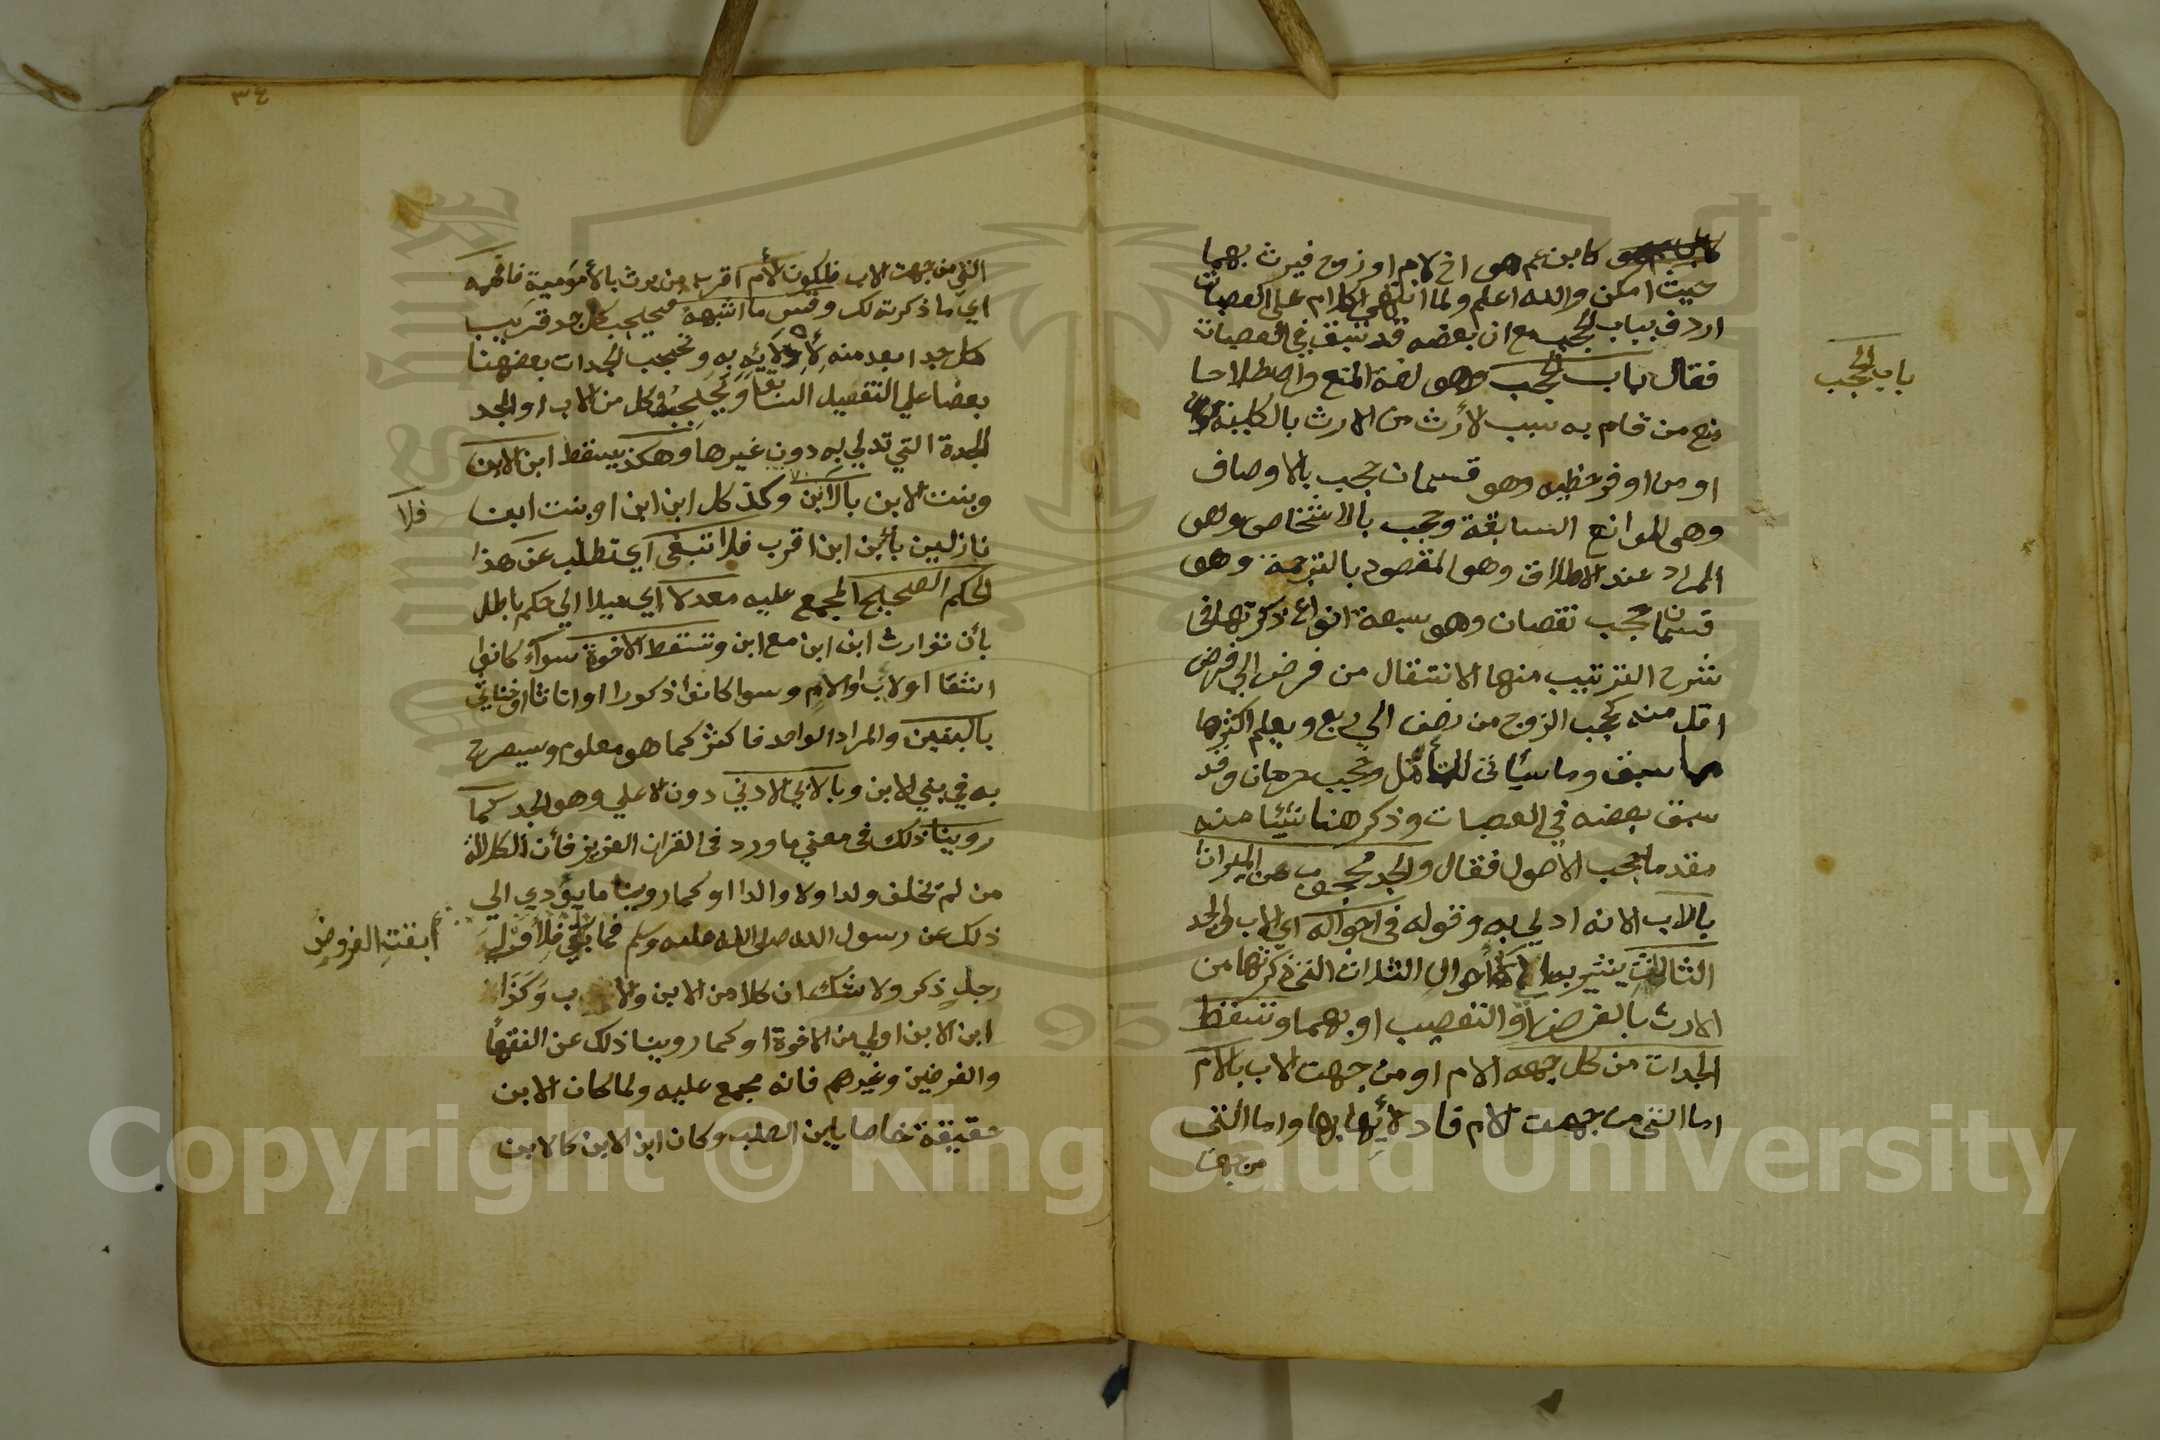 كابن عم هو اخ لام او زوج فيرث بهما
حيث امكن والله اعلم ولما انتهى الكلام على العصبات
اردف بباب الحجب مع ان بعضه قد سبق في العصبات
فقال باب الحجب وهو لغة المنع واصطلاحا
باب الحجب
منع من قام به سبب الأرث من الارث بالكلية
او من اوفر حظيه وهو قسمان حجب بالاوصاف
وهي الموانع السابقة وحجب بالاشخاص وهو
المراد عند الاطلاق وهو المقصود بالترجمة وهو
قسمان حجب نقصان وهو سبعة انواع ذكرتها في
شرح الترتيب منها الانتقال من فرض الي فرض
اقل منه كحجب الزوج من نصف الي ربع ويعلم اكثرها
مما سبق وما سيأتي للتأمل وحجب حرمان وقد
سبق بعضه في العصبات وذكر هنا شيئا منه
مقدما حجب الاصول فقال والجد محجوب عن الميراث
بالاب لانه ادلي به وقوله في احواله اي الاب او الجد
الثالث يشير به الي الأحوال الثلاث التي ذكرتها من
الارث بالفرض او التعصيب او بهما وتسقط
الجدات من كل جهه الام او من جهت الاب بالام
اما التي من جهت الام فادلائها بها واما التي
من جهت
٣٤
التي من جهت الاب فلكون الأم اقرب من يرث بالأمومية فافهمه
اي ما ذكرته لك وقس ما اشبهه فيحجب كل جد قريب
كل جد ابعد منه لإدلائه به وتحجب الجدات بعضهنا
بعضا علي التفصيل السابق ويحجب كل من الاب او الجد
الجدة التي تدلي به دون غيرها وهكذا يسقط ابن الابن
وبنت الابن بالابن وكذ كل ابن ابن او بنت ابن
فلا
نازلين بأبن ابن اقرب فلا تبغي اي تطلب عن هذا
الحكم الصحيح المجمع عليه معدلا اي ميلا الي حكم باطل
بأن توارث ابن ابن مع ابن وتسقط الاخوة سوآء كانوا
اشقا او لاب او لام وسوا كانوا ذكورا او اناثا او خناثي
بالبنين والمراد الواحد فاكثر كما هو معلوم وسيصرح
به في بني الابن وبالاب الادني دون الاعلي وهو الجد كما
روينا ذلك في معني ما ورد في القران العزيز فأن الكلالة
من لم يخلف ولدا ولا والدا او كما روينا ما يؤدي الي
ذلك عن رسول الله صلى الله عليه وسلم فما بقي فلأولى
أبقت الفروض
رجل ذكر ولا شك ان كلا من الابن والاب وكذا
ابن الابن اولي من الاخوة او كما روينا ذلك عن الفقهأ
والفرضين وغيرهم فانه مجمع عليه ولما كان الابن
حقيقة خاصا بابن الصلب وكان ابن الابن كالابن
Copyright © King Saud University